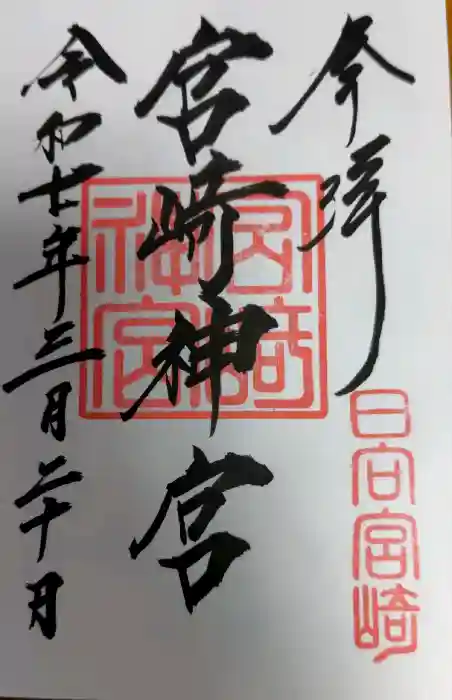 奉拝
日向宮崎
宮崎神宮
宮崎神宮
令和七年三月二十日